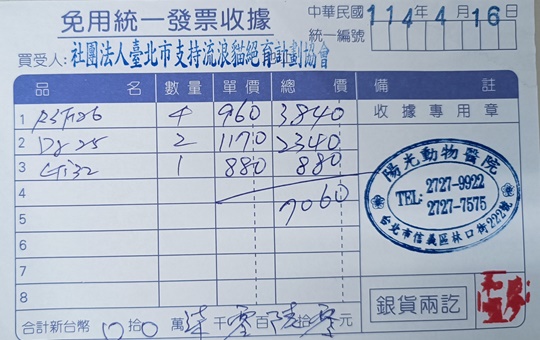 免用統一發票收據
中華民國 114年4月16日
統一編號
買受人: 社團法人臺北市支持流浪貓絕育計劃協會
品名 數量 單價 總價 備註
1 4 960 3,840 收據專用章
2 25 2 1170 2340
3 32 1 880 880
4
5 7060
6
7
8
陽光動物醫院
TEL: 2727-9922
2727-7575
台北市信義區林口街222號
銀貨兩訖
合計新台幣 拾 萬 柒 千 零 百 陸 拾 零 元